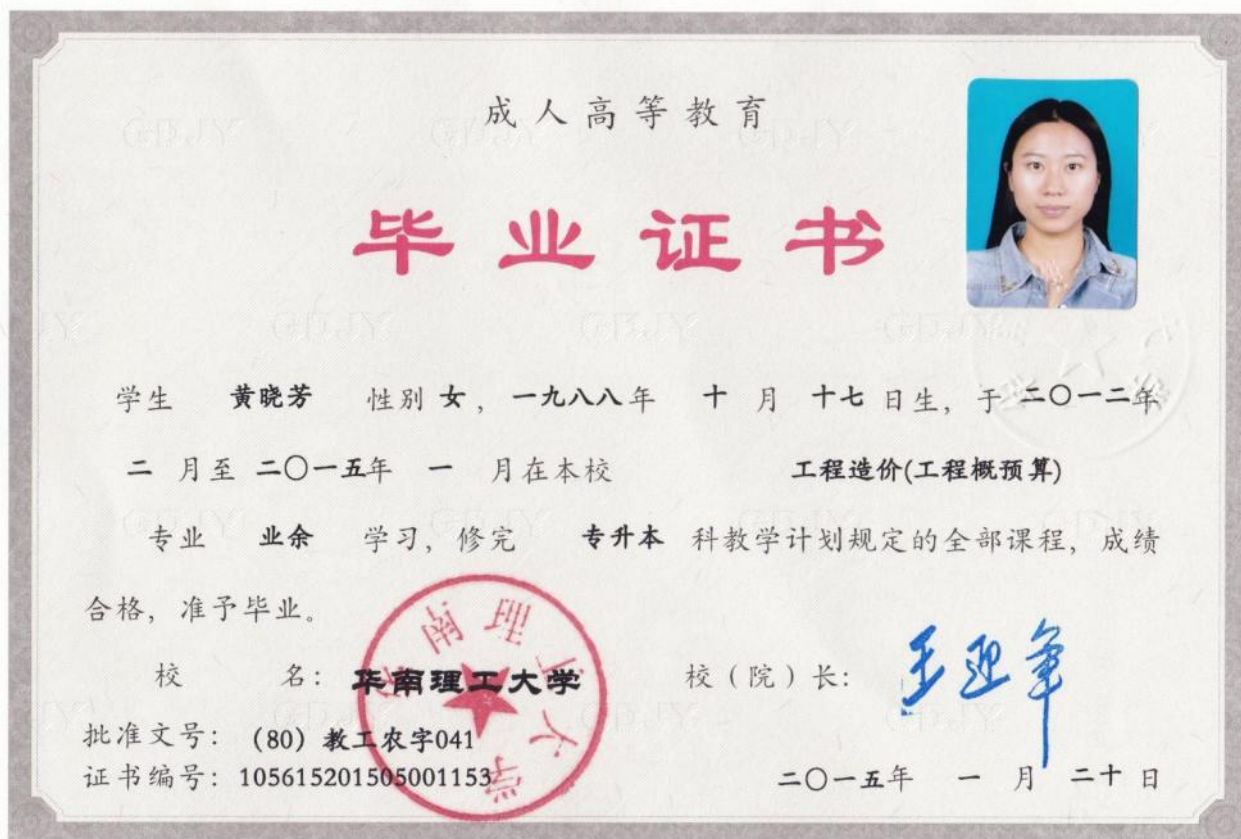 成人高等教育
毕业证书
学生 黄晓芳 性别 女，一九八八年 十 月 十七 日生，于 二〇一二年
二 月至 二〇一五年 一 月在本校 工程造价(工程概预算)
专业 业余 学习，修完 专升本 科教学计划规定的全部课程，成绩
合格，准予毕业。
校 名：华南理工大学 校（院）长：王迎军
批准文号：（80）教工农字041
证书编号：105615201505001153
二〇一五年 一 月 二十 日
华南理工大学
GDJY